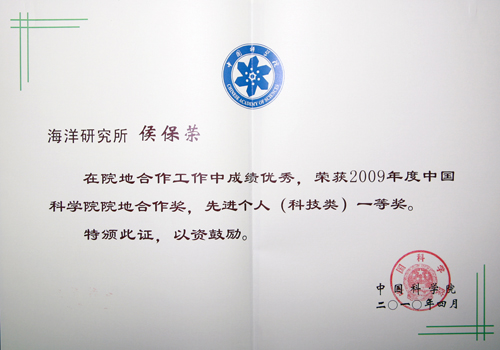 中国科学院
CHINESE ACADEMY OF SCIENCES
海洋研究所 侯保荣
在院地合作工作中成绩优秀，荣获2009年度中国
科学院院地合作奖，先进个人（科技类）一等奖。
特颁此证，以资鼓励。
中国科学院
二〇一〇年四月